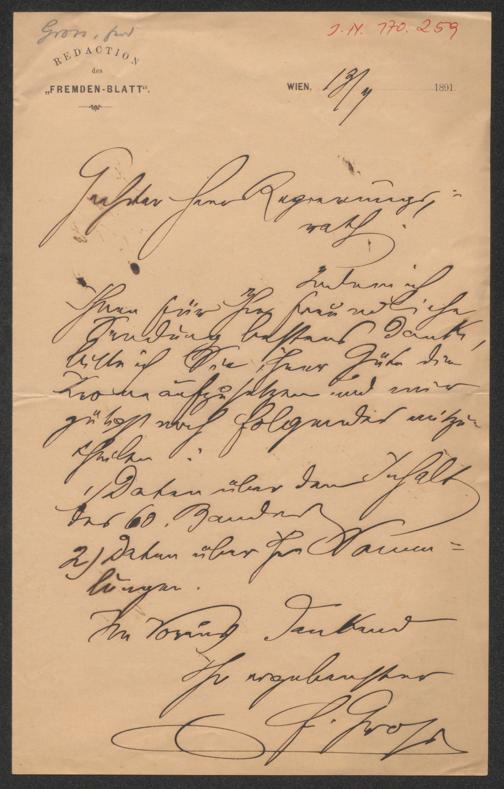 Gross, Ferd
J.N. 170.259
REDACTION
des
„FREMDEN-BLATT“.
WIEN, 13/4 1891.
Geehrter Herr Regierungs-
rath.
Indem ich
Ihnen für Ihre freundliche
Sendung bestens danke,
bitte ich Sie, Ihrer Güte die
Krone aufzusetzen und mir
gütigst noch folgendes mitzu-
theilen:
1) Daten über den Inhalt
des 60. Bandes
2) Daten über Ihre Samm-
lungen.
Im Voraus dankend
Ihr ergebenster
F. Gross